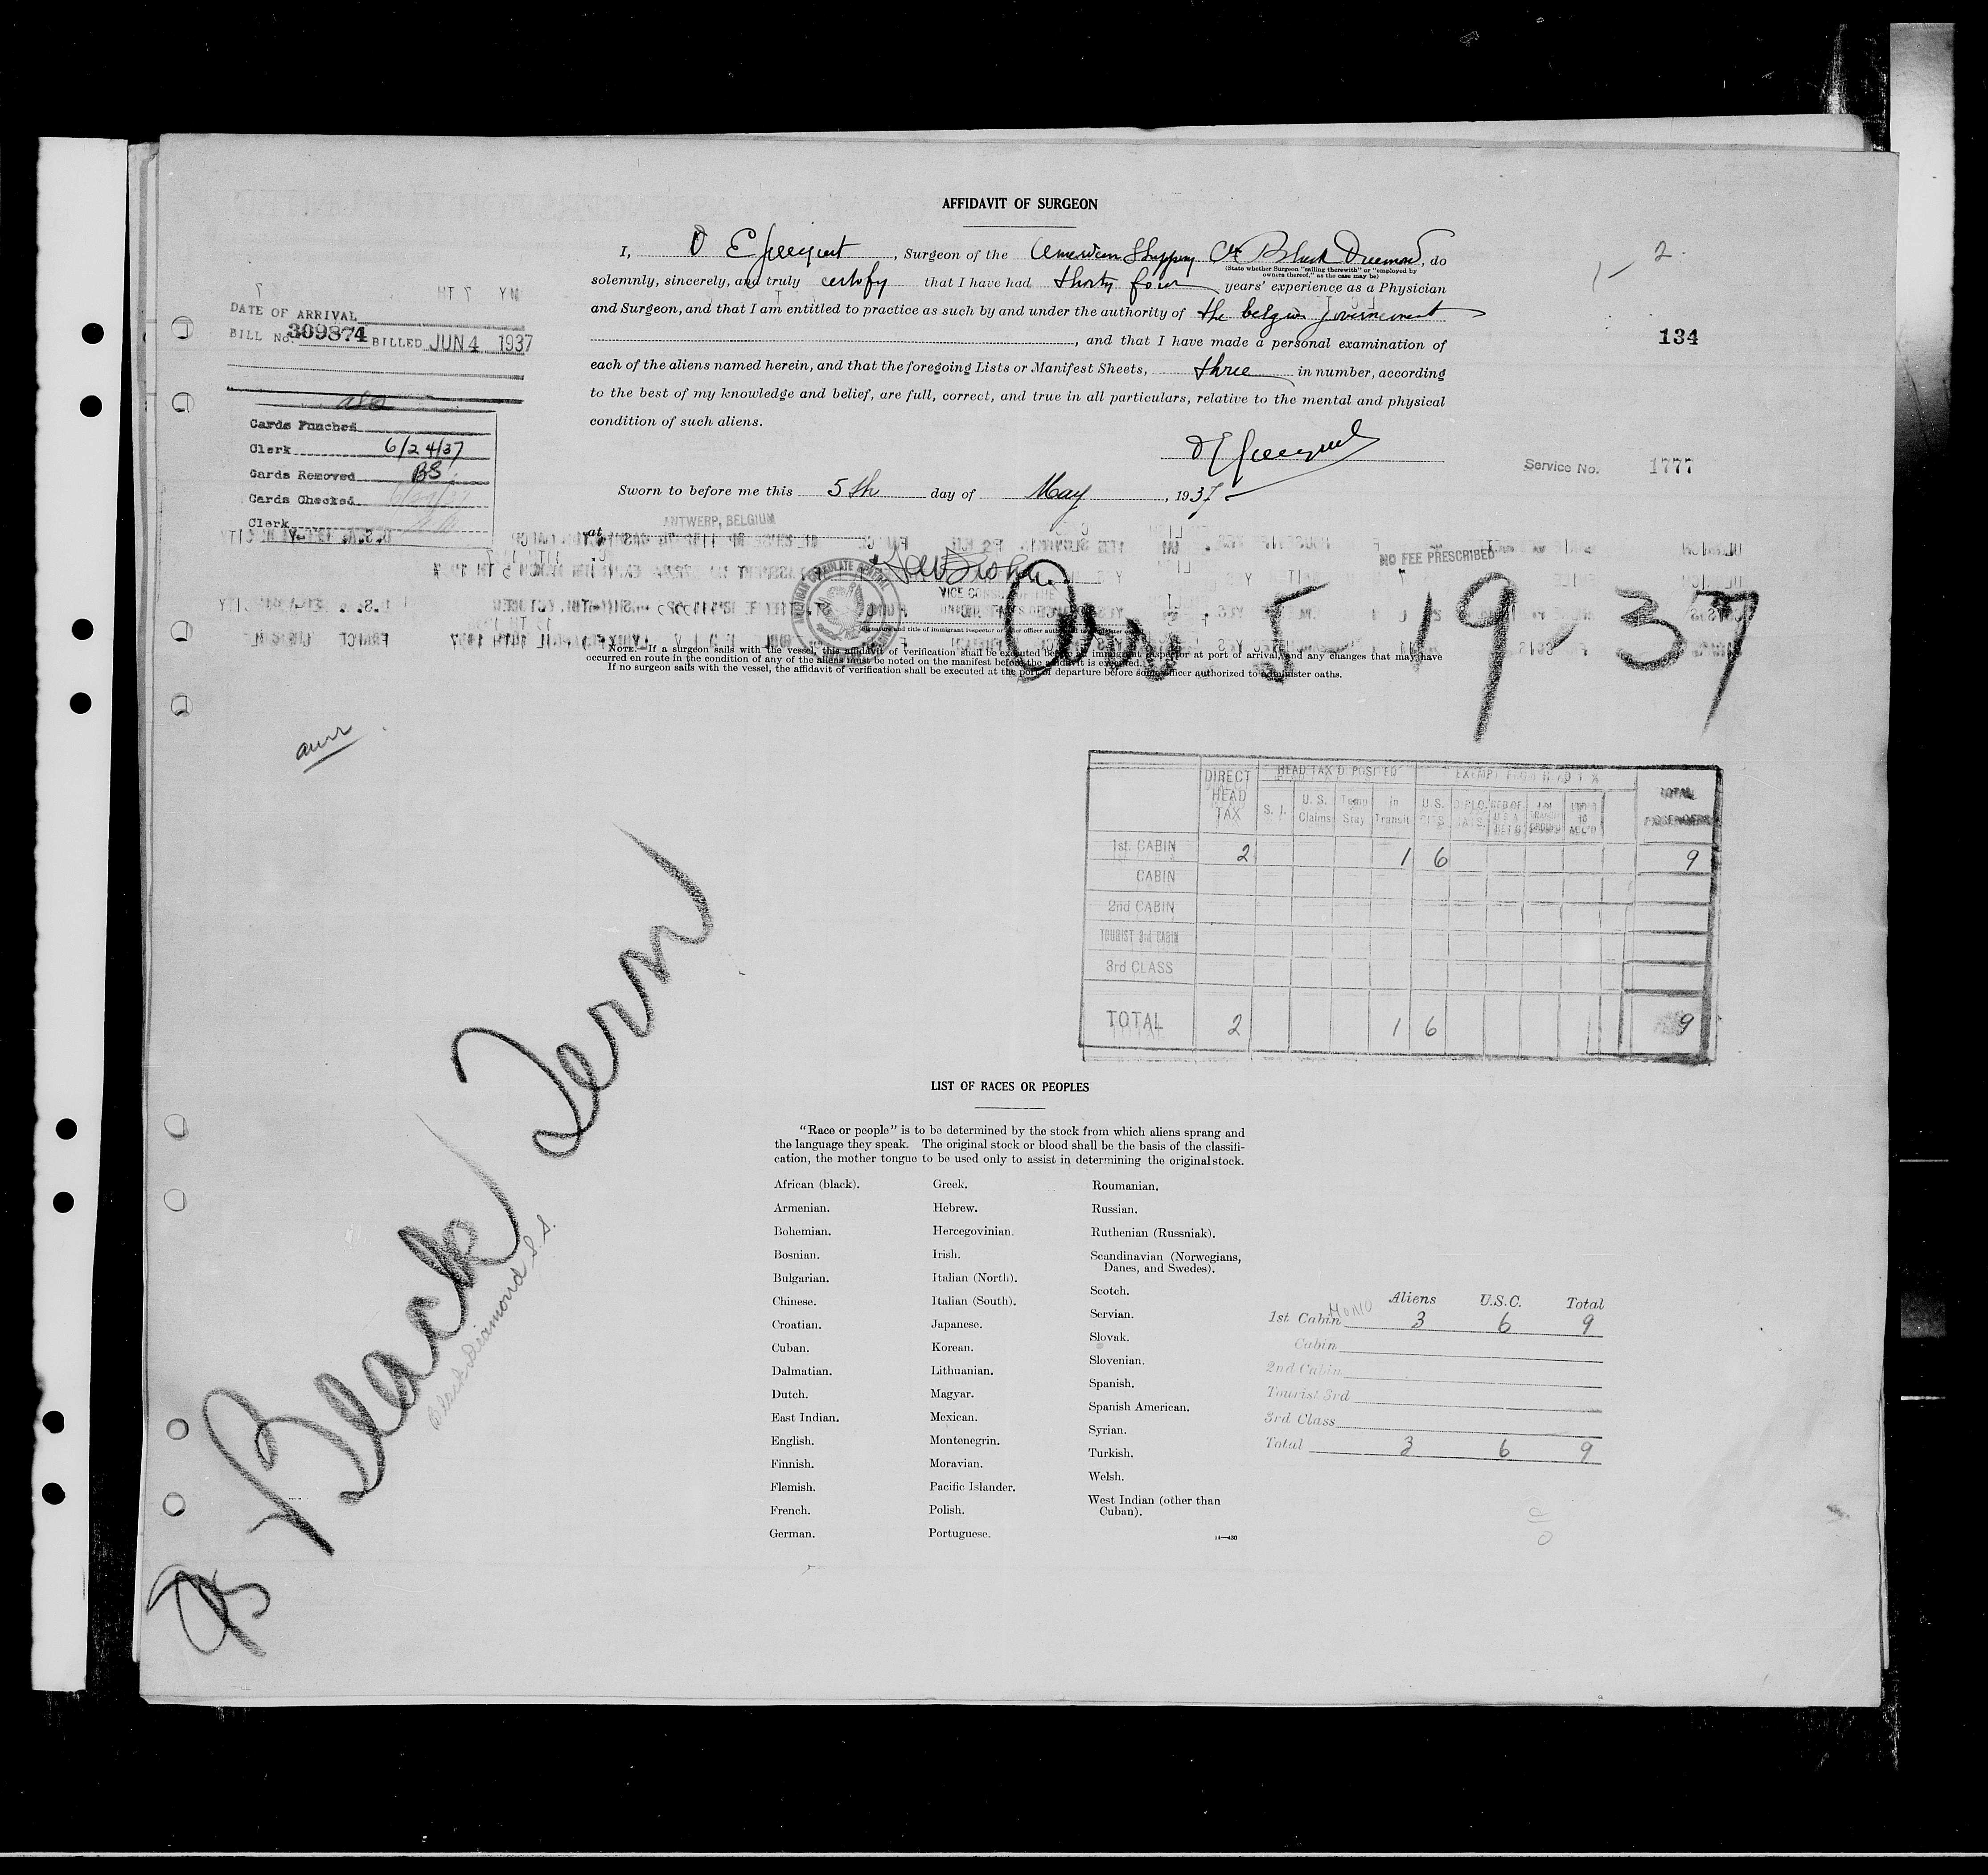 AFFIDAVIT OF SURGEON
I, , Surgeon of the American Shipping Black , do
(State whether Surgeon "sailing therewith" or "employed by
owners thereof," as the case may be)
solemnly, sincerely, and truly certify that I have had thirty four years' experience as a Physician
and Surgeon, and that I am entitled to practice as such by and under the authority of the
, and that I have made a personal examination of
each of the aliens named herein, and that the foregoing Lists or Manifest Sheets, three in number, according
to the best of my knowledge and belief, are full, correct, and true in all particulars, relative to the mental and physical
condition of such aliens.
Sworn to before me this 5th day of May, 1937
at ANTWERP, BELGIUM
NO FEE PRESCRIBED
VICE CONSUL OF THE
NOTE.—If a surgeon sails with the vessel, this affidavit of verification shall be executed before an immigrant inspector at port of arrival, and any changes that may have
occurred en route in the condition of any of the aliens must be noted on the manifest before the affidavit is executed.
If no surgeon sails with the vessel, the affidavit of verification shall be executed at the port of departure before some officer authorized to administer oaths.
2
134
Service No. 1777
DATE OF ARRIVAL
BILL No. 309874 BILLED JUN 4 1937
Cards Punched
Clerk 6/24/37
Cards Removed BS
Cards Checked
Clerk
5-19-37
DIRECT HEAD TAX
HEAD TAX DEPOSITED
EXEMPT FROM HEAD TAX
TOTAL PASSENGERS
S. I. U. S. Claims Temp Stay in Transit U.S. CITS. DIPLO. MATS.
1st. CABIN 2 1 6 9
CABIN
2nd CABIN
TOURIST 3rd CABIN
3rd CLASS
TOTAL 2 1 6 9
Black Tern
Black Diamond S.S.
LIST OF RACES OR PEOPLES
"Race or people" is to be determined by the stock from which aliens sprang and
the language they speak. The original stock or blood shall be the basis of the classifi-
cation, the mother tongue to be used only to assist in determining the original stock.
African (black).
Armenian.
Bohemian.
Bosnian.
Bulgarian.
Chinese.
Croatian.
Cuban.
Dalmatian.
Dutch.
East Indian.
English.
Finnish.
Flemish.
French.
German.
Greek.
Hebrew.
Hercegovinian.
Irish.
Italian (North).
Italian (South).
Japanese.
Korean.
Lithuanian.
Magyar.
Mexican.
Montenegrin.
Moravian.
Pacific Islander.
Polish.
Portuguese.
Roumanian.
Russian.
Ruthenian (Russniak).
Scandinavian (Norwegians,
Danes, and Swedes).
Scotch.
Servian.
Slovak.
Slovenian.
Spanish.
Spanish American.
Syrian.
Turkish.
Welsh.
West Indian (other than
Cuban).
Aliens U.S.C. Total
1st Cabin 3 6 9
Cabin
2nd Cabin
Tourist 3rd
3rd Class
Total 3 6 9